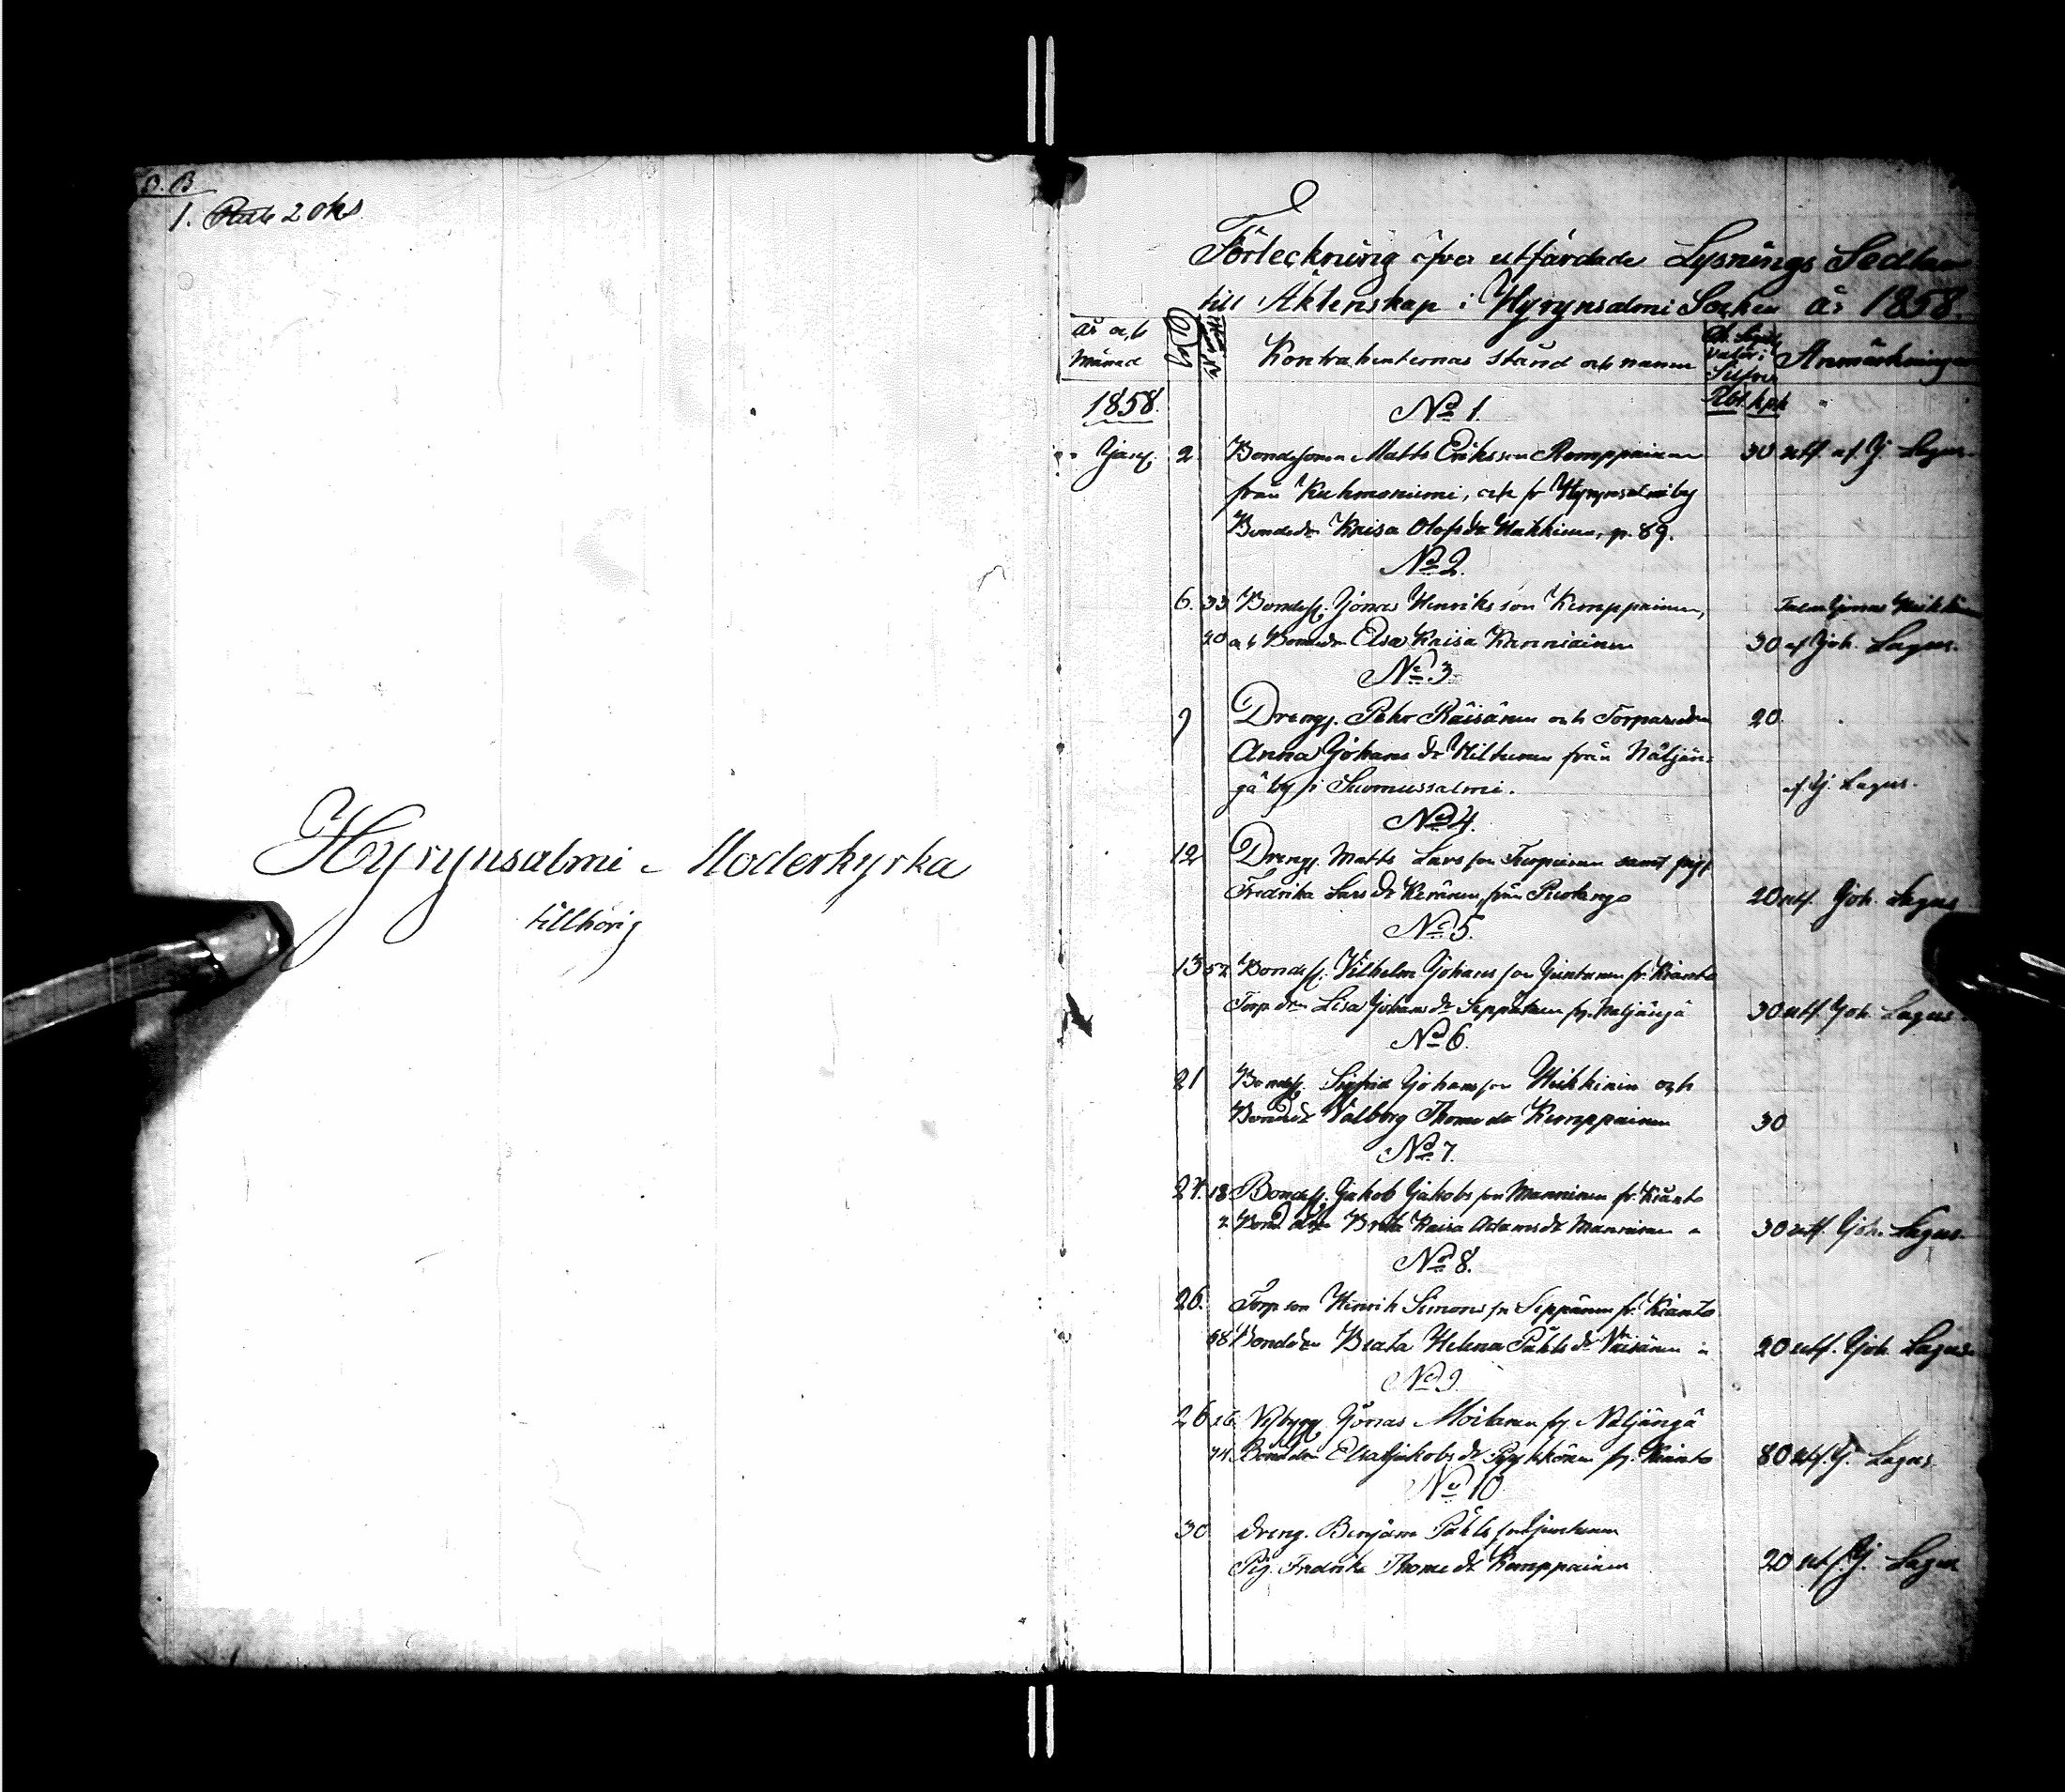 O. B.
1. 20ks
Hyrynsalmi Moderkyrka
tillhörig
Förteckning öfver utfärdade Lysnings Sedlar
till Äktenskap i Hyrynsalmi Socken År 1858.
År och
Månad
Kontrahenternas stånd och namn
Silfver
Anmärkningar
Rbl. kpk
1858.
No 1.
Jan. 2 Bondesonen Matts Eriksson Romppainen 30 utf. af J. Lagus.
från Kuhmoniemi, och fr Hyrynsalmi by
Bondedr Kaisa Olofsdr Hakkinen, p. 89.
No 2.
6. 33 Bondes. Jonas Henriksson Kemppainen,
20 och Bondedr Elsa Kaisa Kanniainen 30 af Joh. Lagus.
No 3.
9 Drengs. Pehr Räisänen och Torparedr 20.
Anna Johansdr Hiltunen från Näljän-
gä by i Suomussalmi. af J. Lagus.
No 4.
12 Dreng. Matts Larsson Turpeinen samt pig.
Fredrika Larsdr Keränen från Puolango 20 utf. Joh. Lagus
No 5.
13 52 Bondes. Vilhelm Johansson Juntunen fr. Kianto
Torp. dr Lisa Johansdr Seppänen fr. Näljängä 30 utf. Joh. Lagus.
No 6.
21 Bondes. Sigfrid Johansson Heikkinen och
Bondedr Valborg Thomedr Kemppainen 30
No 7.
24. 18 Bondes. Jakob Jakobsson Manninen fr. Kianto
2 Bond. dr Brita Kaisa Adamsdr Manninen 30 utf. Joh. Lagus.
No 8.
26. Torp. son Henrik Simonsson Seppänen fr. Kianto
68 Bondedr Beata Helena Påhlsdr Väisänen 20 utf. Joh. Lagus.
No 9.
26 26 Nybygg. Jonas Moilanen fr. Näljängä
74 Bondedr Elsa Jakobsdr Pyykkönen fr. Kianto 80 utf. J. Lagus
No 10
30 Dreng. Benjam Påhlsson Juntunen
Pig. Fredrika Thomedr Kemppainen 20 utf. J. Lagus